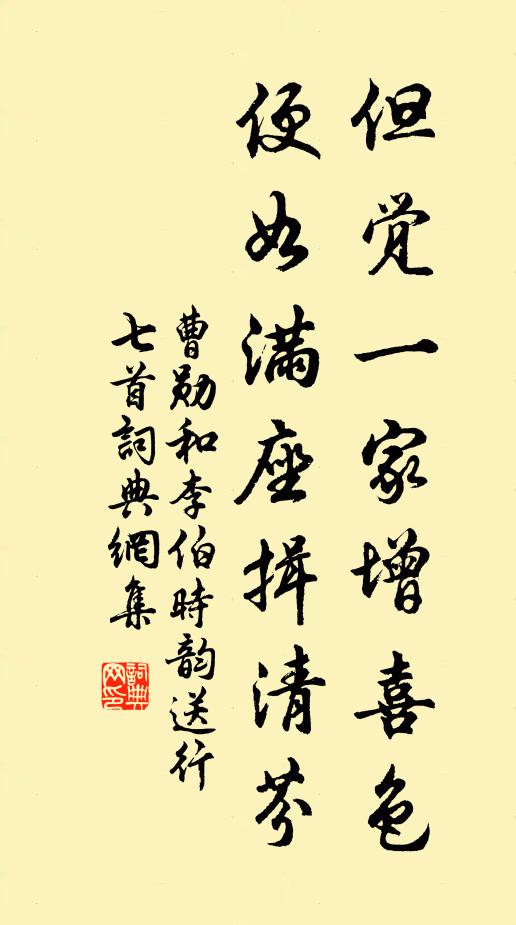 但觉一家增喜色
便如满座揖清芬
曹勋和李伯時韵送行
七首詞典網集
詞典网印